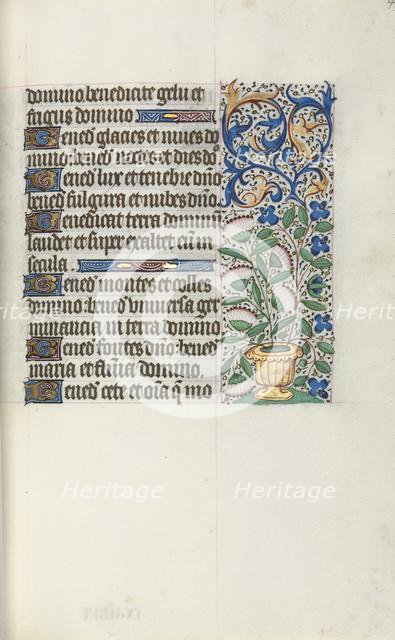 domino, benedicite gelu et
frigus domino
Bened glacies et niues do
mino bened noctes et dies dō
Bened lux et tenebre dn̄o
bened fulgura et nubes dn̄o.
Benedicat terra dominū
laudet et super exaltet eū in
secula.
Bened montes et colles
domino bened vniuersa ger
minancia in terra domino.
Bened fontes dn̄o bened
maria et flu͞ia domino.
Bened cete et oīa q̄ mo
Heritage Heritage
Heritage Heritage
Heritage Heritage